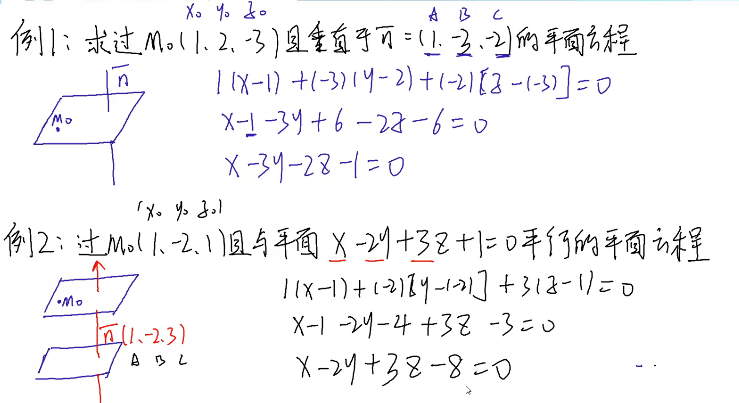 x₀ y₀ z₀ A B C
例1：求过M₀(1,2,-3)且垂直于n̄=(1,-3,-2)的平面方程
n̄
M₀
1(x-1)+(-3)(y-2)+(-2)[z-(-3)]=0
x-1-3y+6-2z-6=0
x-3y-2z-1=0
(x₀ y₀ z₀)
例2：过M₀(1,-2,1)且与平面 x-2y+3z+1=0平行的平面方程
M₀
n̄(1,-2,3)
A B C
1(x-1)+(-2)[y-(-2)]+3(z-1)=0
x-1-2y-4+3z-3=0
x-2y+3z-8=0